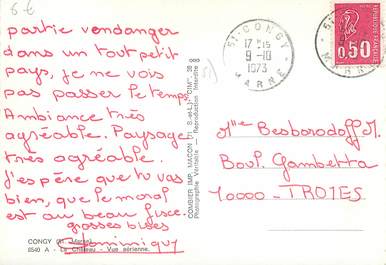 6 €
partie vendanger
dans un tout petit
pays, je ne vois
pas passer le temps.
Ambiance très
agréable. Paysage
très agréable.
J'espère que tu vas
bien, que le moral
est au beau fixe.
grosses bises
Dominique
CONGY (51. Marne)
8540 A - Le Château - Vue aérienne.
COMBIER IMP. MACON (71. S.-et-L.) "CIM"
Photographie Véritable - Reproduction Interdite
51-CONGY
17H15
9-10
1973
MARNE
51-CONGY
MARNE
REPUBLIQUE FRANCAISE
0,50
Mlle Besborodoff M.
Boul. Gambetta
10000 - TROYES.